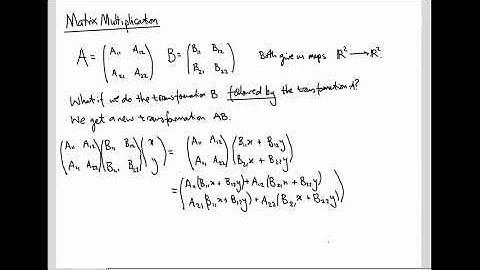 Matrix Multiplication
A = (A₁₁ A₁₂ B = (B₁₁ B₁₂ Both give us maps ℝ² → ℝ².
A₂₁ A₂₂) B₂₁ B₂₂)
What if we do the transformation B followed by the transformation A?
We get a new transformation AB.
(A₁₁ A₁₂ (B₁₁ B₁₂ (x = (A₁₁ A₁₂ (B₁₁x + B₁₂y
A₂₁ A₂₂) B₂₁ B₂₂) y) A₂₁ A₂₂) B₂₁x + B₂₂y)
= (A₁₁(B₁₁x + B₁₂y) + A₁₂(B₂₁x + B₂₂y)
A₂₁(B₁₁x + B₁₂y) + A₂₂(B₂₁x + B₂₂y))